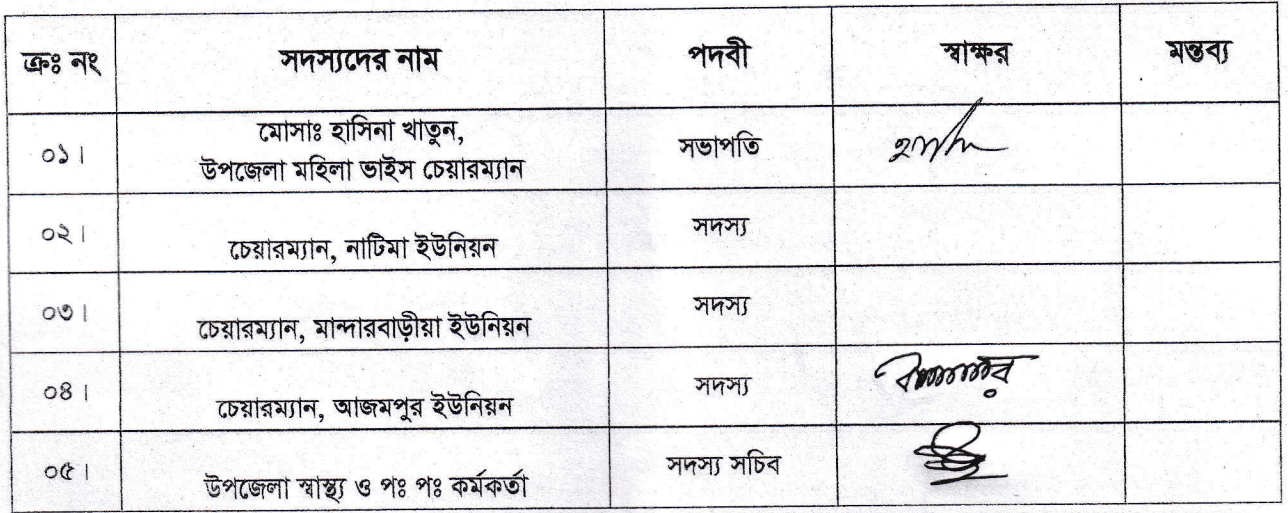 ক্রঃ নং সদস্যদের নাম পদবী স্বাক্ষর মন্তব্য
০১। মোসাঃ হাসিনা খাতুন, সভাপতি
উপজেলা মহিলা ভাইস চেয়ারম্যান
০২। চেয়ারম্যান, নাটিমা ইউনিয়ন সদস্য
০৩। চেয়ারম্যান, মান্দারবাড়ীয়া ইউনিয়ন সদস্য
০৪। চেয়ারম্যান, আজমপুর ইউনিয়ন সদস্য
০৫। উপজেলা স্বাস্থ্য ও পঃ পঃ কর্মকর্তা সদস্য সচিব